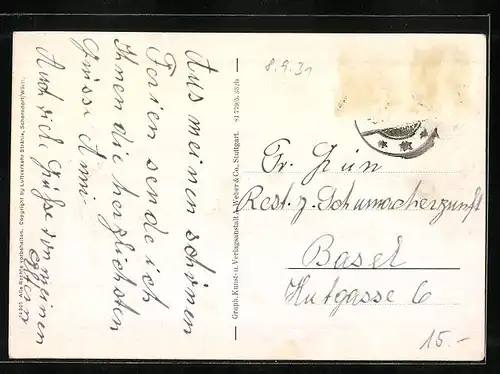 Aus meinen schönen
Ferien sende ich
Ihnen die herzlichsten
Grüsse Anni
Auch viele Grüße von meinen
Eltern
Alle Rechte vorbehalten. Copyright by Luftverkehr Strähle, Schorndorf/Württ.
Graph. Kunst- u. Verlagsanstalt A. Weber & Co., Stuttgart.
8.9.31
Rest. z. Schumacherzunft
Basel
Hutgasse 6
15.-